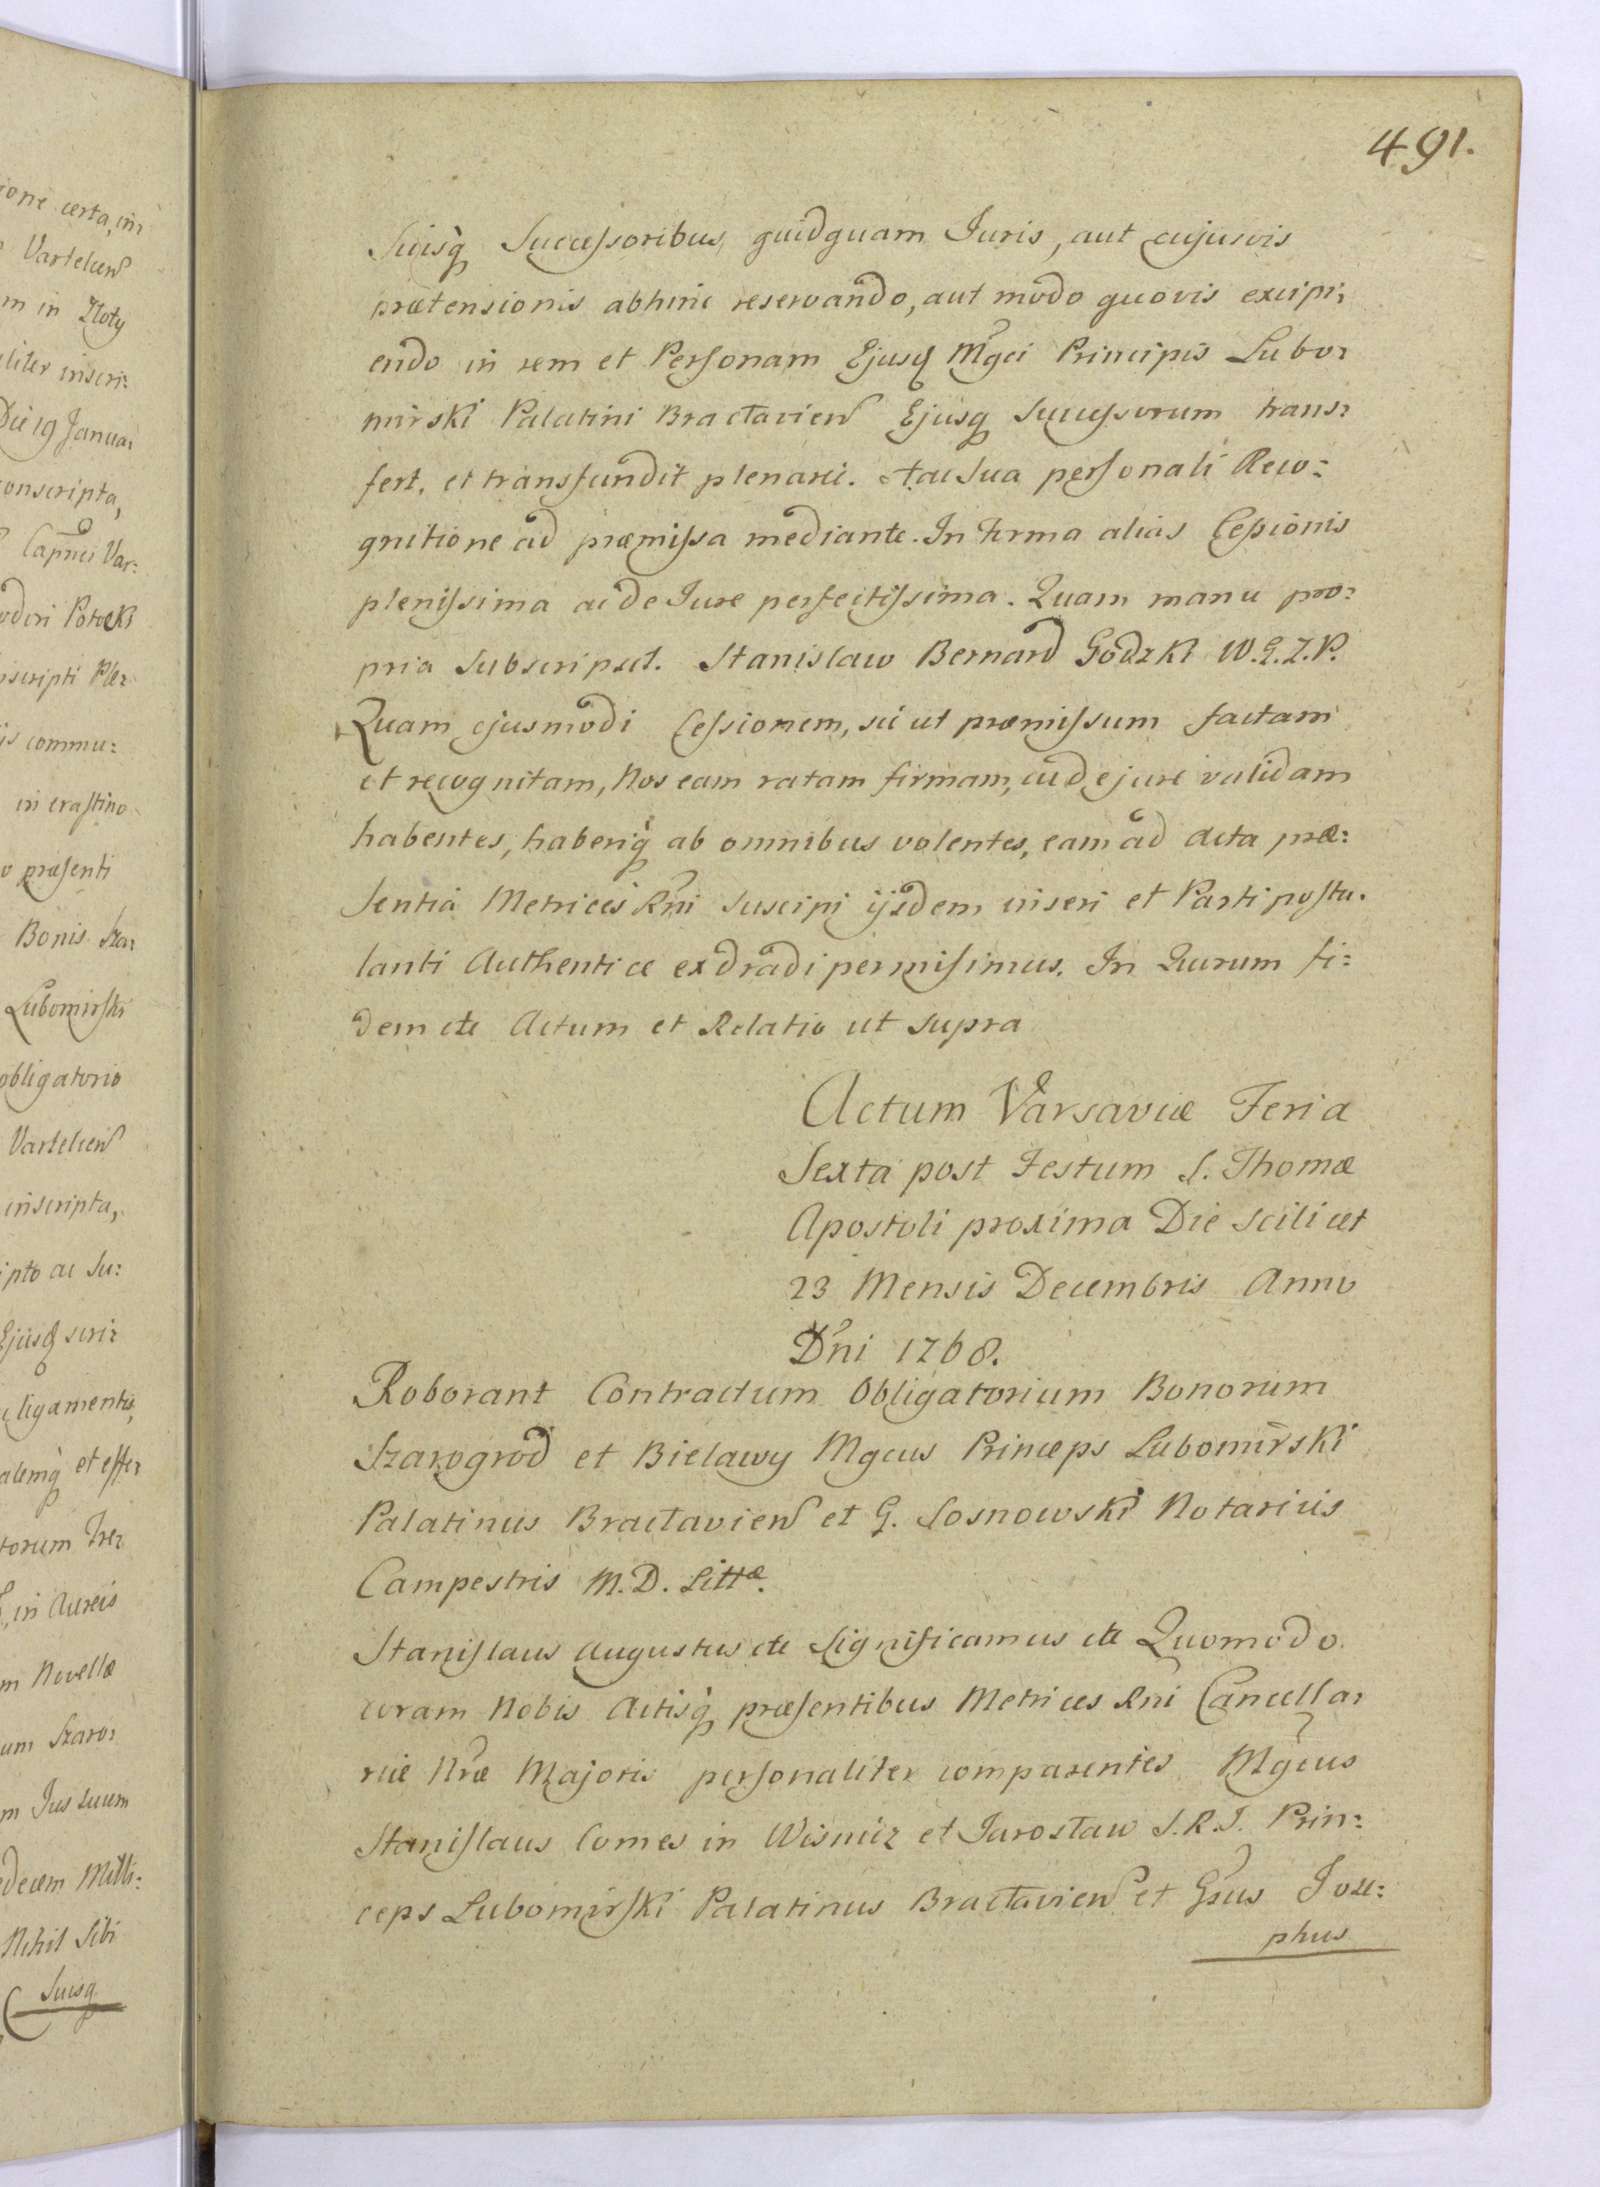 491.
Suisq̀ Successoribus quidquam Juris, aut cujusvis
prætensionis abhinc reservando, aut modo quovis excipi,
endo in rem et Personam Ejusq Mgci Principis Lubo,
mirski Palatini Bractavien Ejusq Successorum trans,
fert, et transfundit plenarie. Hac Sua personali Reco:
gnitione ad præmissa mediante. In forma alias Cessionis
plenissima ac de Jure perfectissima. Quam manu pro:
pria Subscripsit. Stanislaw Bernard Godzki W.G.Z.P.
Quam ejusmodi Cessionem, sic ut præmissum factam
et recognitam, Nos eam ratam firmam, ac de jure validam
habentes, haberiq̀ ab omnibus volentes, eam ad Acta præ:
sentia Metrices Rni suscipi ijsdem inseri et Parti postu.
lanti Authentice extradi permisimus. In Quorum fi:
dem etc Actum et Relatio ut supra
Actum Varsaviæ Feria
Sexta post Festum S. Thomæ
Apostoli proxima Die scilicet
23 Mensis Decembris Anno
Dni 1768.
Roborant Contractum Obligatorium Bonorum
Szarogrod et Bielawy Mgcus Princeps Lubomirski
Palatinus Bractavien et G. Sosnowski Notarius
Campestris M.D. Littæ.
Stanislaus Augustus etc Significamus etc Quomodo
coram Nobis Actisq̀ præsentibus Metrices Rni Cancella,
riæ Nræ Majoris personaliter comparentes Mgcus
Stanislaus Comes in Wisnicz et Jarosław S.R.J. Prin:
ceps Lubomirski Palatinus Bractavien et Gsus Jose:
phus
ione certa, in,
Vartelien
m in Zloty
aliter inscri:
Die 19 Janua,
conscripta,
Capnei Var:
Potocki
nscripti Ple,
is commu:
in crastino
o præsenti
Bonis Sza,
Lubomirski
obligatorio
Vartelien
inscripta,
ipto ac Su:
Ejusq scri,
ligamentis,
alemq̀ et effe,
torum Tre,
in Aureis
m Novellæ
um Szaro,
m Jus suum
edecem Milli:
Nihil Sibi
Suisq